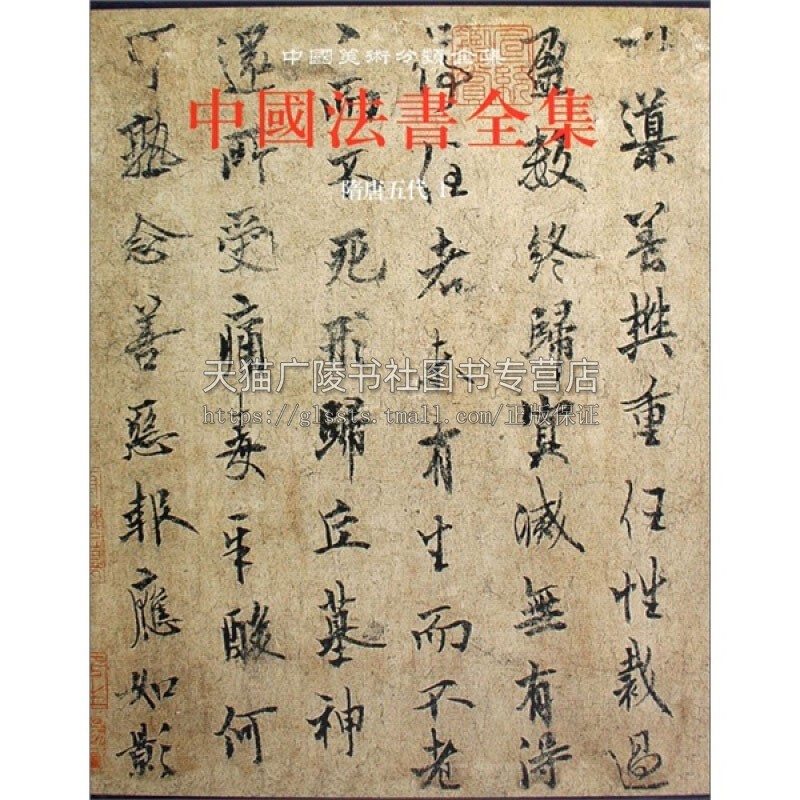 中國美術分類全集
中國法書全集
隋唐五代 1
以導養樊重任性裁過
盈數終歸冥滅無有得
停住者未有生而不老
〻而不死形歸丘墓神
還所受痛毒辛酸何
可熟念善惡報應如影
天猫广陵书社图书专营店
https://glssts.tmall.com/正版保证